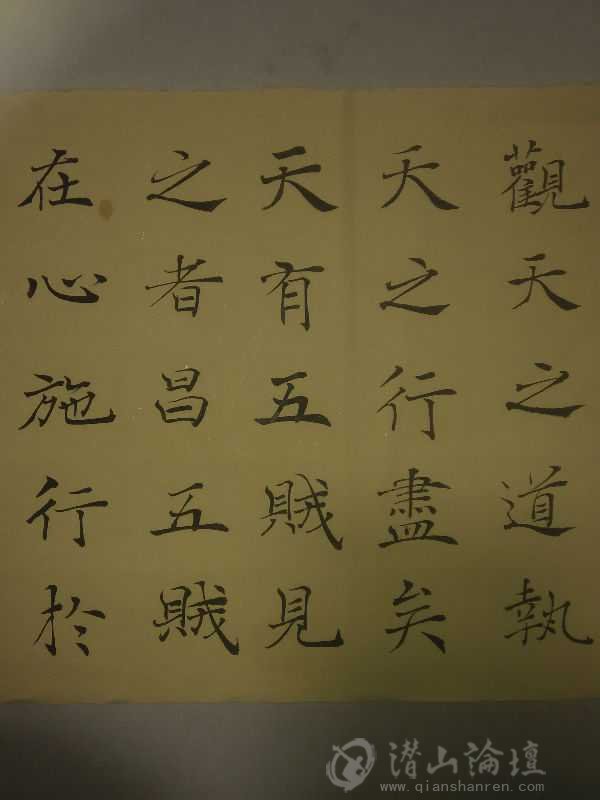 觀天之道執
天之行盡矣
天有五賊見
之者昌五賊
在心施行於
潜山論壇
www.qianshanren.com